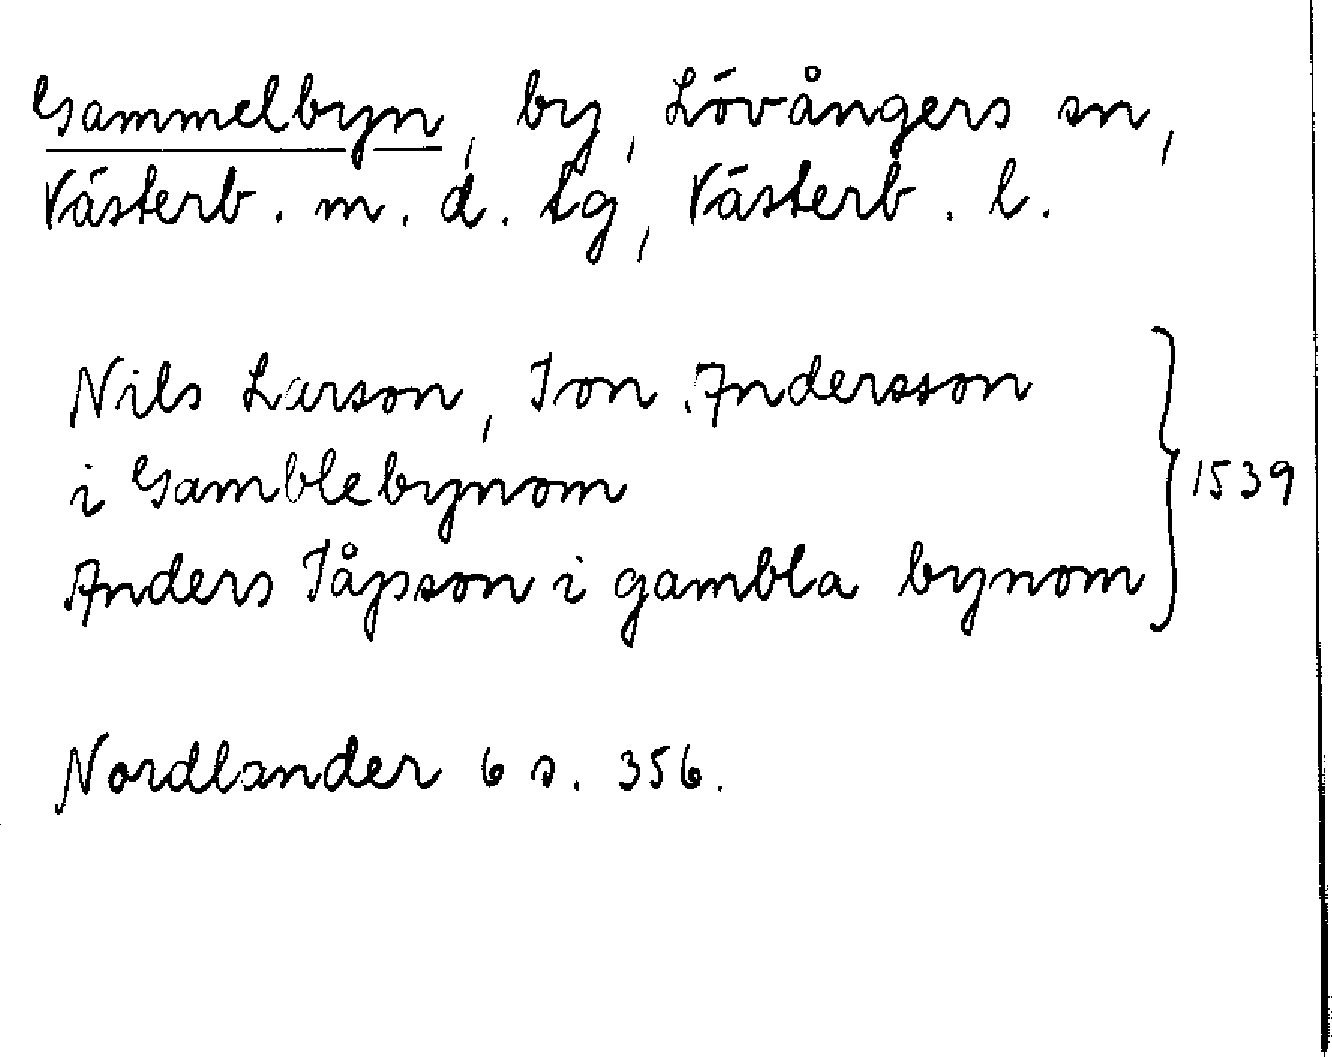 Gammelbyn, by, Lövångers sn,
Västerb. m. d. tg, Västerb. l.
Nils Larson, Jon Andersson
i Gamblebynom
Anders Jåpsson i gambla bynom } 1539
Nordlander 6 s. 356.